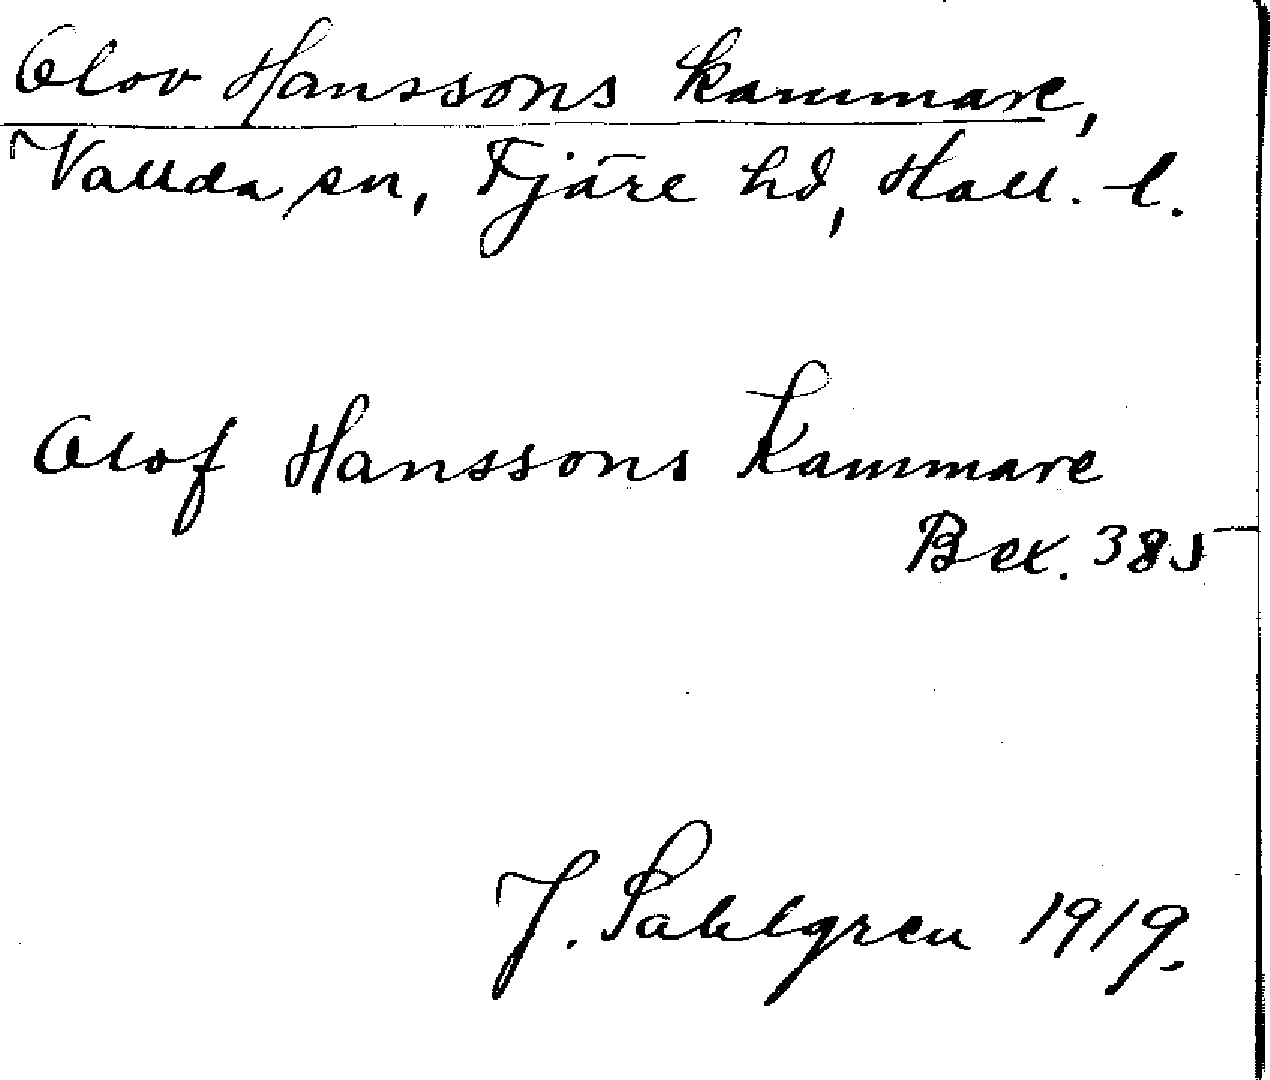 Olov Hanssons kammare,
Vallda sn, Fjäre hd, Hall. l.
Olof Hanssons Kammare
Bex. 385
J. Sahlgren 1919.